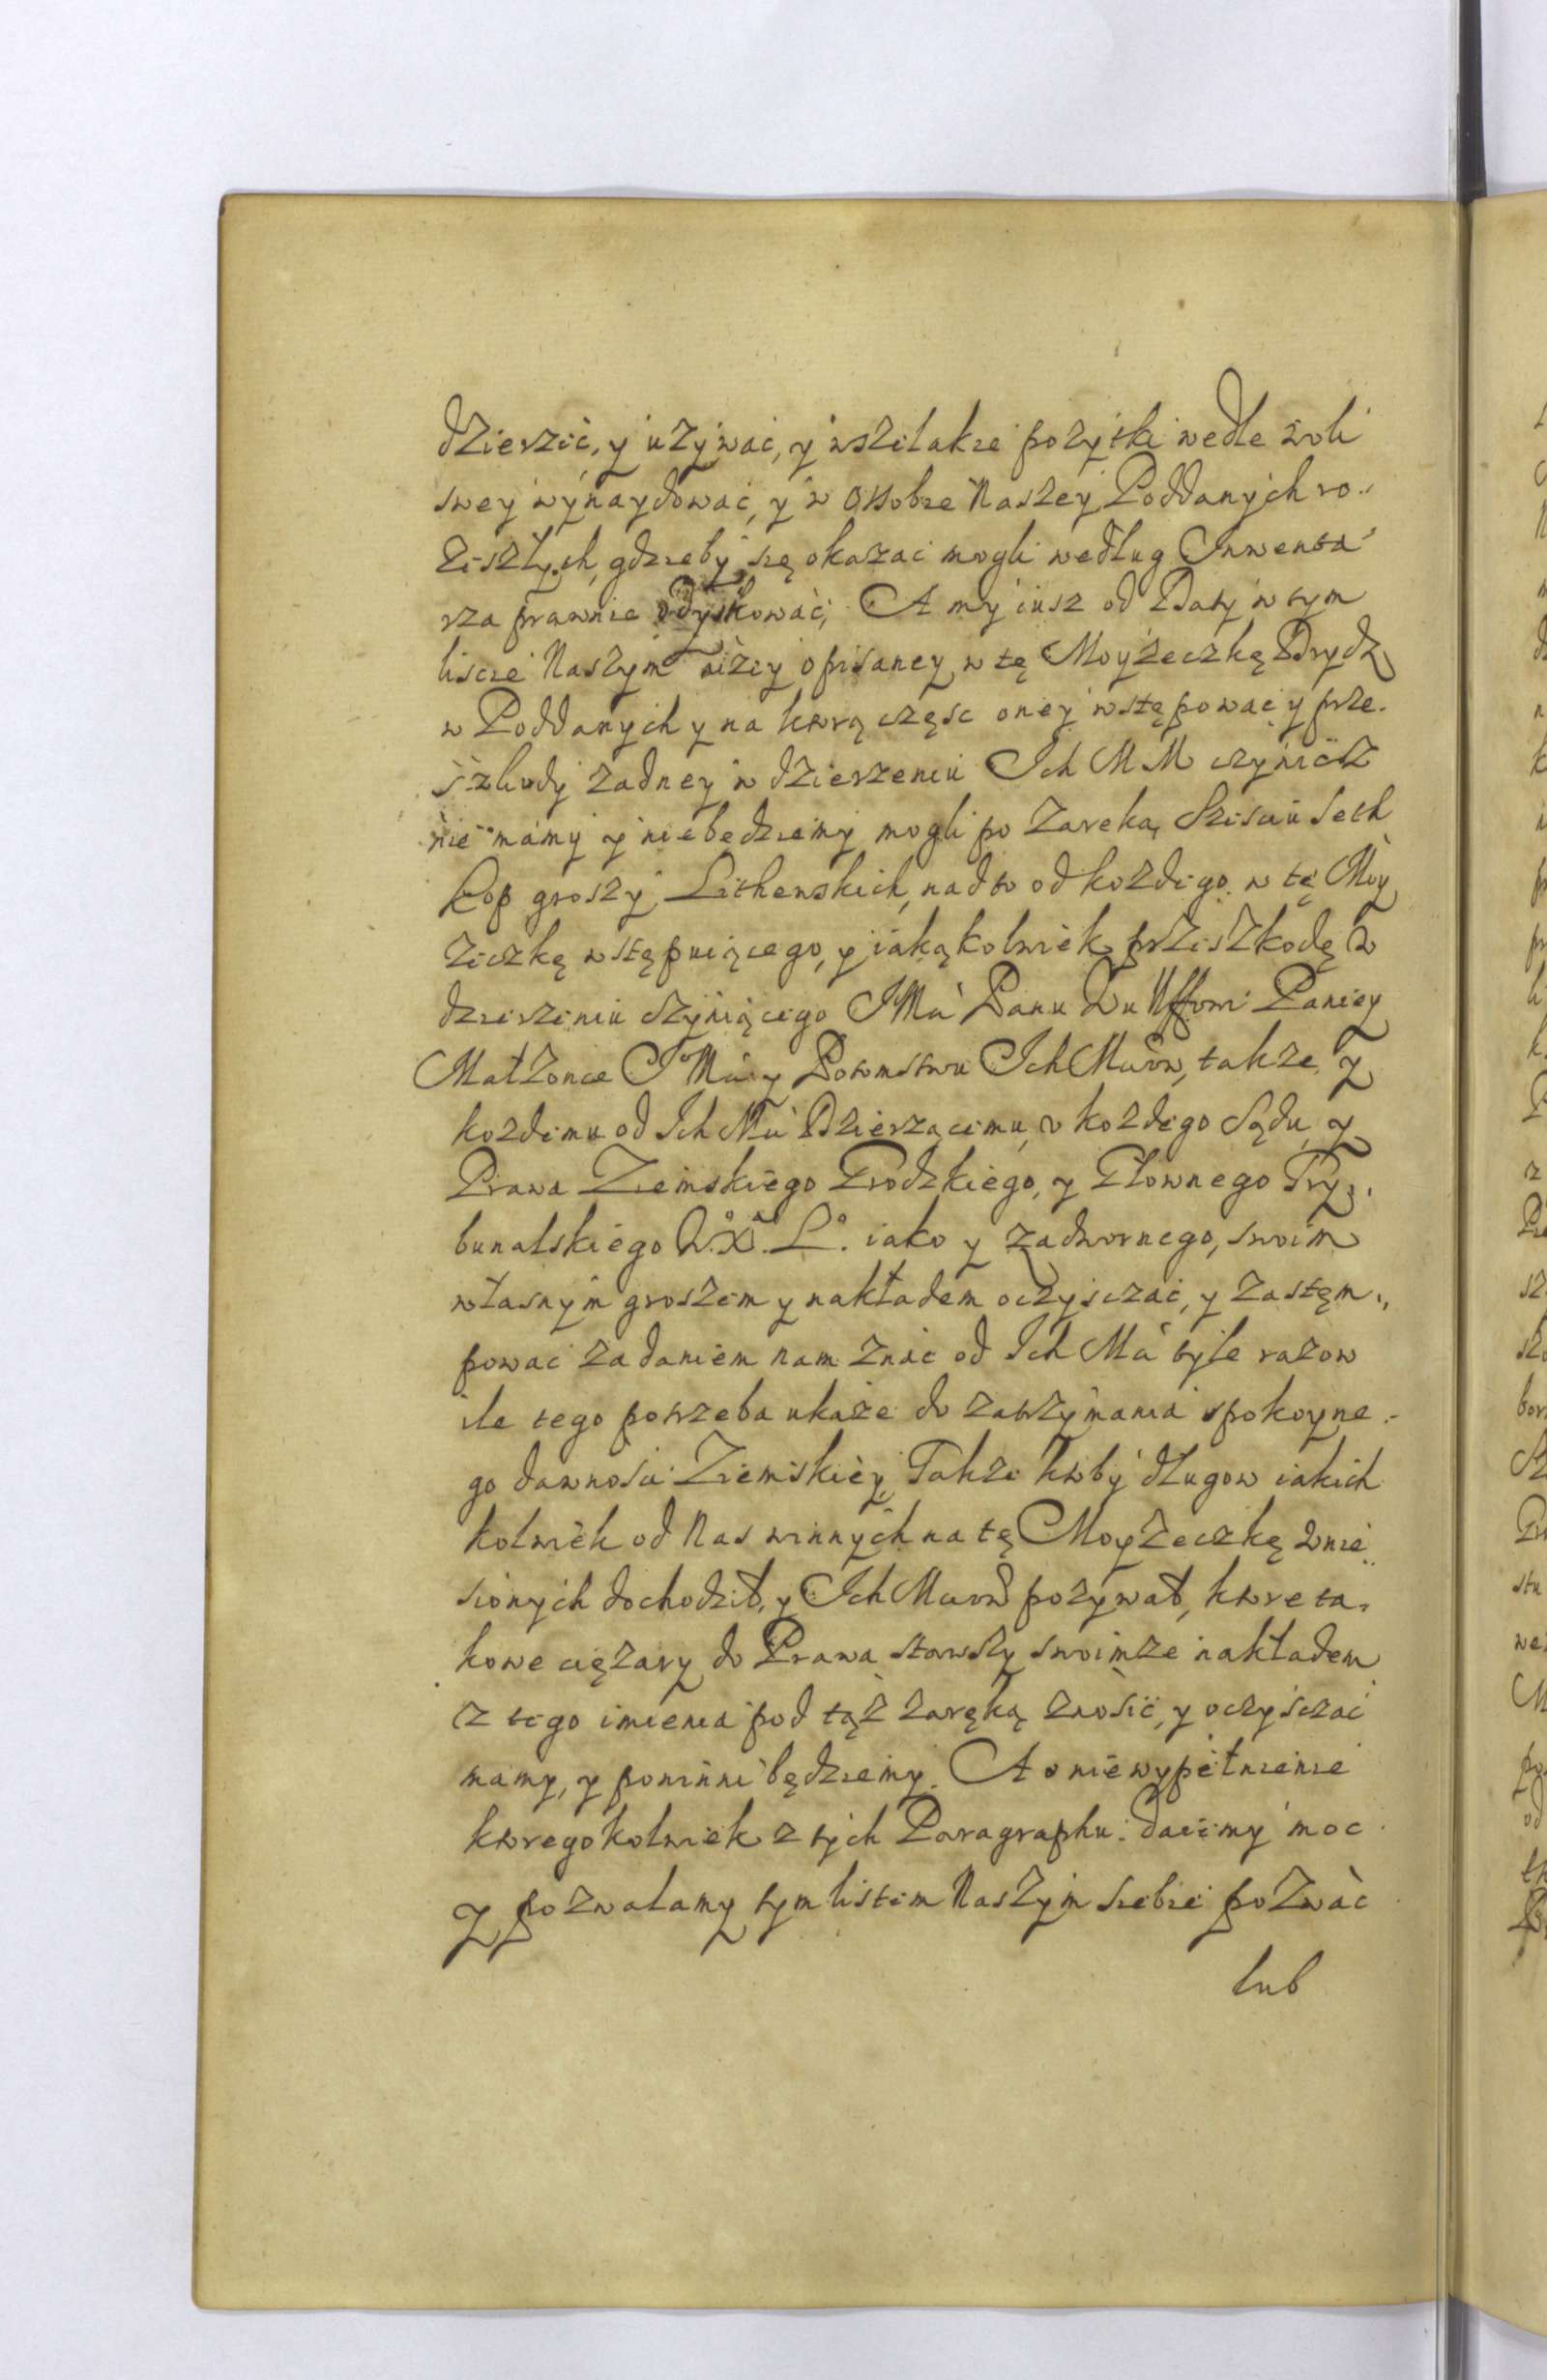 dzierzić, y używać, y wszelakie pożytki wedle woli
swey wynaydować, y w Ossobie Naszey Poddanych ro-
zeszłych, gdzieby się okazać mogli według Inwenta
rza prawnie odyskować; A my iusz od Daty w tym
liscie Naszym niżey opisaney w tę Moyżeczkę
w Poddanych y na ktorą częsc oney wstępować y prze-
szkody żadney w dzierzeniu Ich MM czynićsz
nie mamy y niebędziemy mogli po Zaręką Sziściu Seth
kop groszy Lithewskich, nadto od kożdego w tę Moy
żeczkę wstępuiącego, y iakąkolwiek przeszkodę w
dzierzeniu czyniącego IMci Panu Paniey
Małżonce IMci y Potomstwu Ich Mciow, także y
kożdemu od Ich Mci Dzierzącemu, v kożdego Sądu, y
Prawa Ziemskiego Grodzkiego, y Głownego Try-
bunalskiego W. X. L. iako y zadwornego, swoim
własnym groszem y nakładem oczysczać, y zastęm-
pować za daniem nam znać od Ich Mci tyle razow
ile tego potrzeba ukaże do zatrzymania spokoyne-
go dawności Ziemskiey, Także ktoby długow iakich
kolwiek od Nas winnych na tę Moyżeczkę wnie
sionych dochodził, y Ich Mciow pozywał, ktore ta-
kowe ciężary do Prawa stawszy swoimże nakładem
z tego imienia pod tąż zaręką znosić, y oczysczać
mamy, y powinni będziemy. A o niewypełnienie
ktoregokolwiek z tych Paragraphu. daiemy moc
y pozwalamy tym listem Naszym siebie pozwać
lub